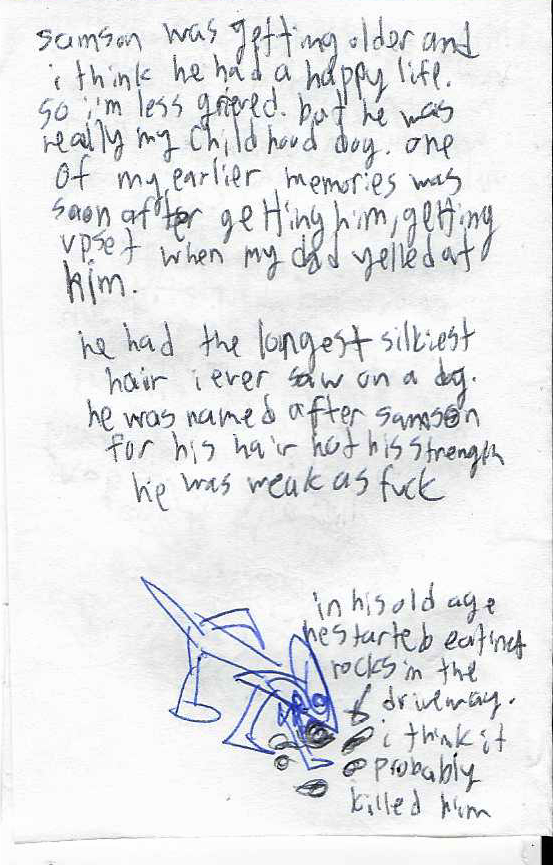 samson was getting older and
i think he had a happy life.
so i'm less grieved. but he was
really my childhood dog. one
of my earlier memories was
soon after getting him, getting
upset when my dad yelled at
him.
he had the longest silkiest
hair i ever saw on a dog.
he was named after samson
for his hair not his strength
he was weak as fuck
in his old age
he started eating
rocks in the
driveway.
i think it
probably
killed him